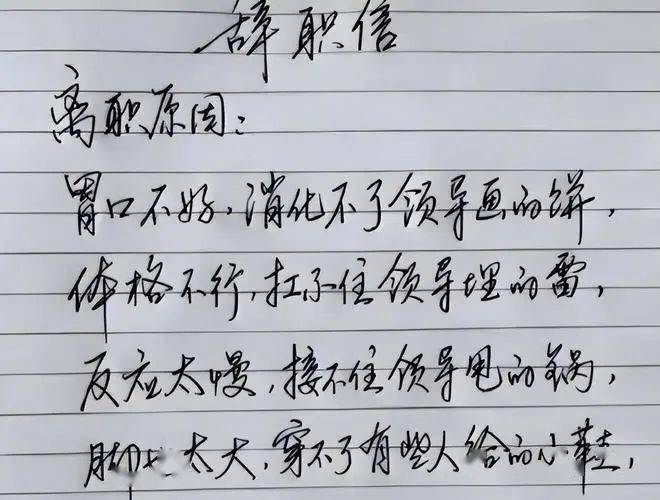 辞职信
离职原因：
胃口不好，消化不了领导画的饼，
体格不行，扛不住领导埋的雷，
反应太慢，接不住领导甩的锅，
脚太大，穿不了有些人给的小鞋，